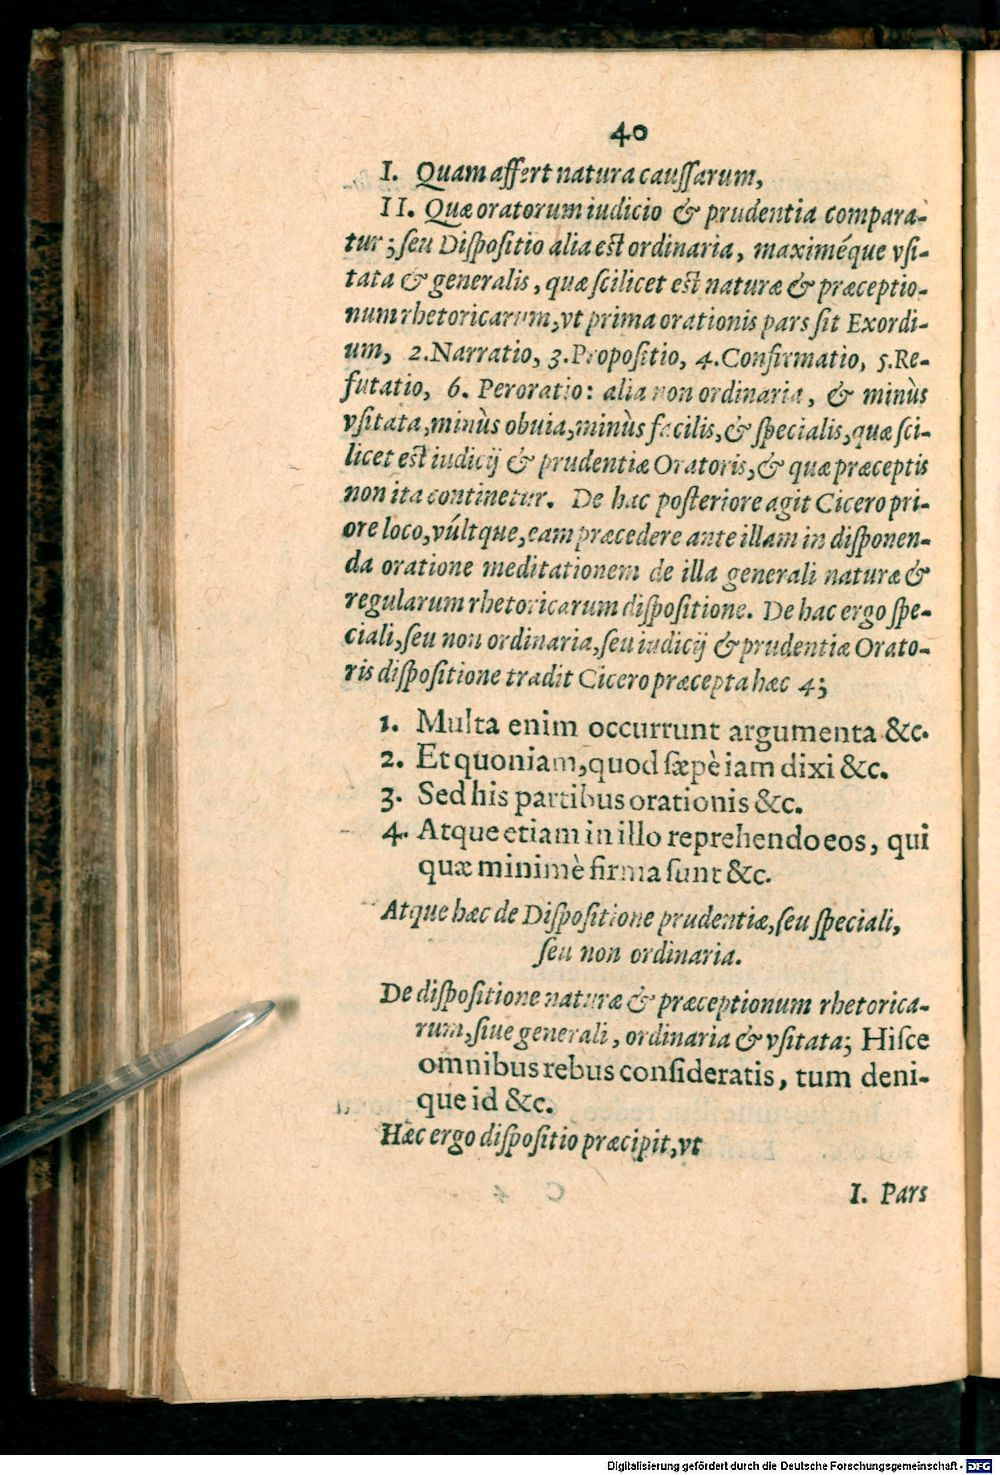 40
I. Quam affert natura cauſſarum,
II. Quæ oratorum iudicio & prudentia compara-
tur; ſeu Diſpoſitio alia eſt ordinaria, maximéque vſi-
tata & generalis, quæ ſcilicet eſt naturæ & præceptio-
num rhetoricarum, vt prima orationis pars ſit Exordi-
um, 2. Narratio, 3. Propoſitio, 4. Confirmatio, 5. Re-
futatio, 6. Peroratio: alia non ordinaria, & minùs
vſitata, minùs obuia, minùs facilis, & ſpecialis, quæ ſci-
licet eſt iudicij & prudentiæ Oratoris, & quæ præceptis
non ita continetur. De hac poſteriore agit Cicero pri-
ore loco, vúltque, eam præcedere ante illam in diſponen-
da oratione meditationem de illa generali naturæ &
regularum rhetoricarum diſpoſitione. De hac ergo ſpe-
ciali, ſeu non ordinaria, ſeu iudicij & prudentiæ Orato-
ris diſpoſitione tradit Cicero præcepta hæc 4;
1. Multa enim occurrunt argumenta &c.
2. Et quoniam, quod ſæpè iam dixi &c.
3. Sed his partibus orationis &c.
4. Atque etiam in illo reprehendo eos, qui
quæ minimè firma ſunt &c.
Atque hæc de Diſpoſitione prudentiæ, ſeu ſpeciali,
ſeu non ordinaria.
De diſpoſitione naturæ & præceptionum rhetorica-
rum, ſiue generali, ordinaria & vſitata; Hiſce
omnibus rebus conſideratis, tum deni-
que id &c.
Hæc ergo diſpoſitio præcipit, vt
I. Pars
Digitalisierung gefördert durch die Deutsche Forschungsgemeinschaft - DFG